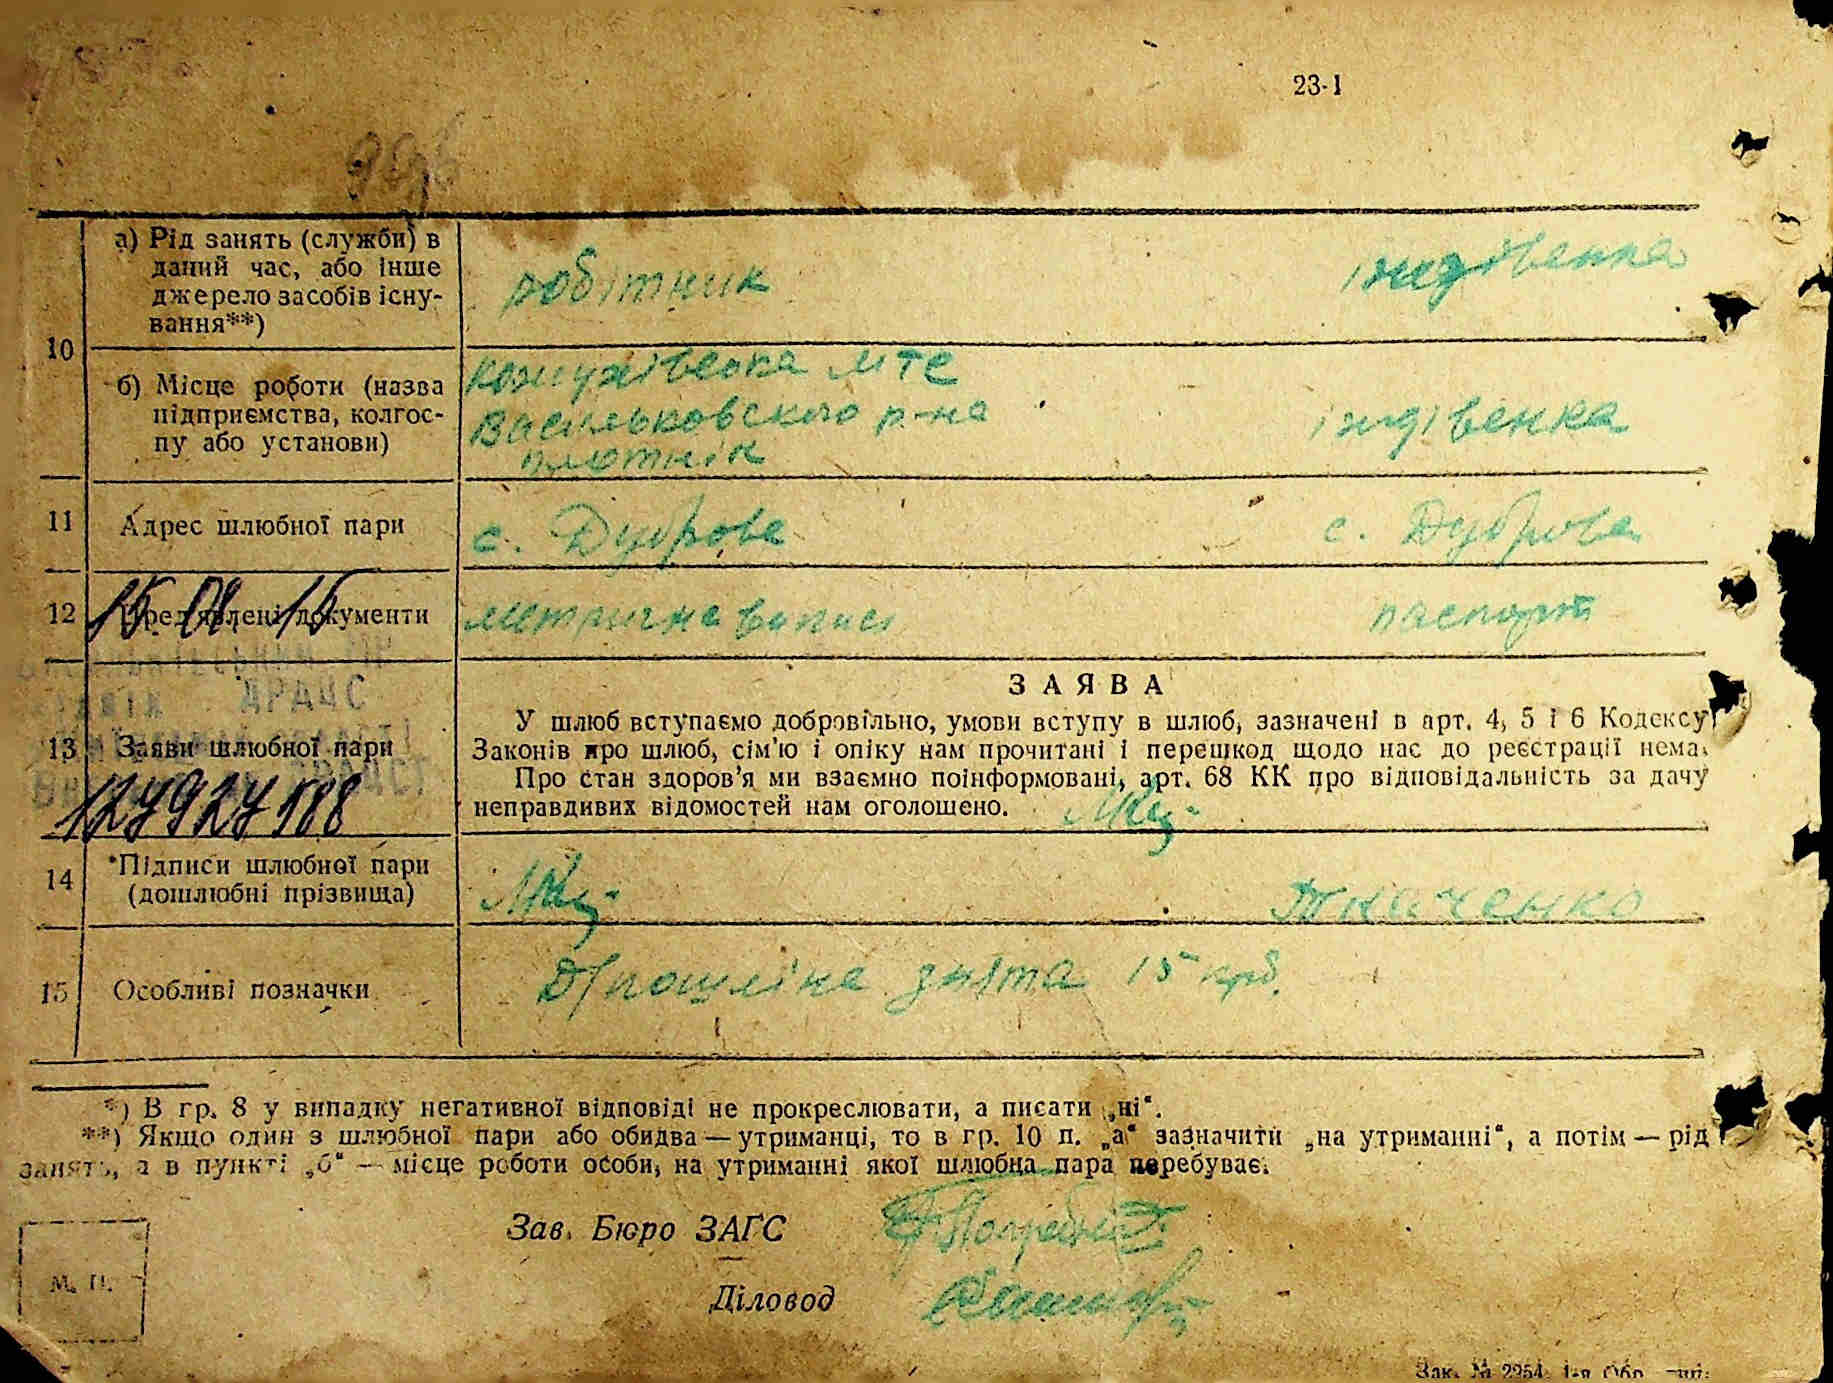 23-1
10
а) Рід занять (служби) в
даний час, або інше
джерело засобів існу-
вання**)
робітник
індівенка
б) Місце роботи (назва
підприємства, колгос-
пу або установи)
Кожухівська МТС
Васильковского р-на
плотнік
індівенка
11
Адрес шлюбної пари
с. Дуброва
с. Дуброва
12
Пред'явлені документи
метрична випись
паспорт
15 01 15
ДРАЦС
13
Заяви шлюбної пари
ЗАЯВА
У шлюб вступаємо добровільно, умови вступу в шлюб, зазначені в арт. 4, 5 і 6 Кодексу
Законів про шлюб, сім'ю і опіку нам прочитані і перешкод щодо нас до реєстрації нема.
Про стан здоров'я ми взаємно поінформовані, арт. 68 КК про відповідальність за дачу
неправдивих відомостей нам оголошено.
14
Підписи шлюбної пари
(дошлюбні прізвища)
Ткаченко
15
Особливі позначки
Д/пошліна знята 15 крб.
*) В гр. 8 у випадку негативної відповіді не прокреслювати, а писати „ні“.
**) Якщо один з шлюбної пари або обидва — утриманці, то в гр. 10 п. „а“ зазначити „на утриманні“, а потім — рід
занять, а в пункті „б“ — місце роботи особи, на утриманні якої шлюбна пара перебуває.
Зав. Бюро ЗАГС
М. П.
Діловод
Зак. № 2254. 1-я Обр